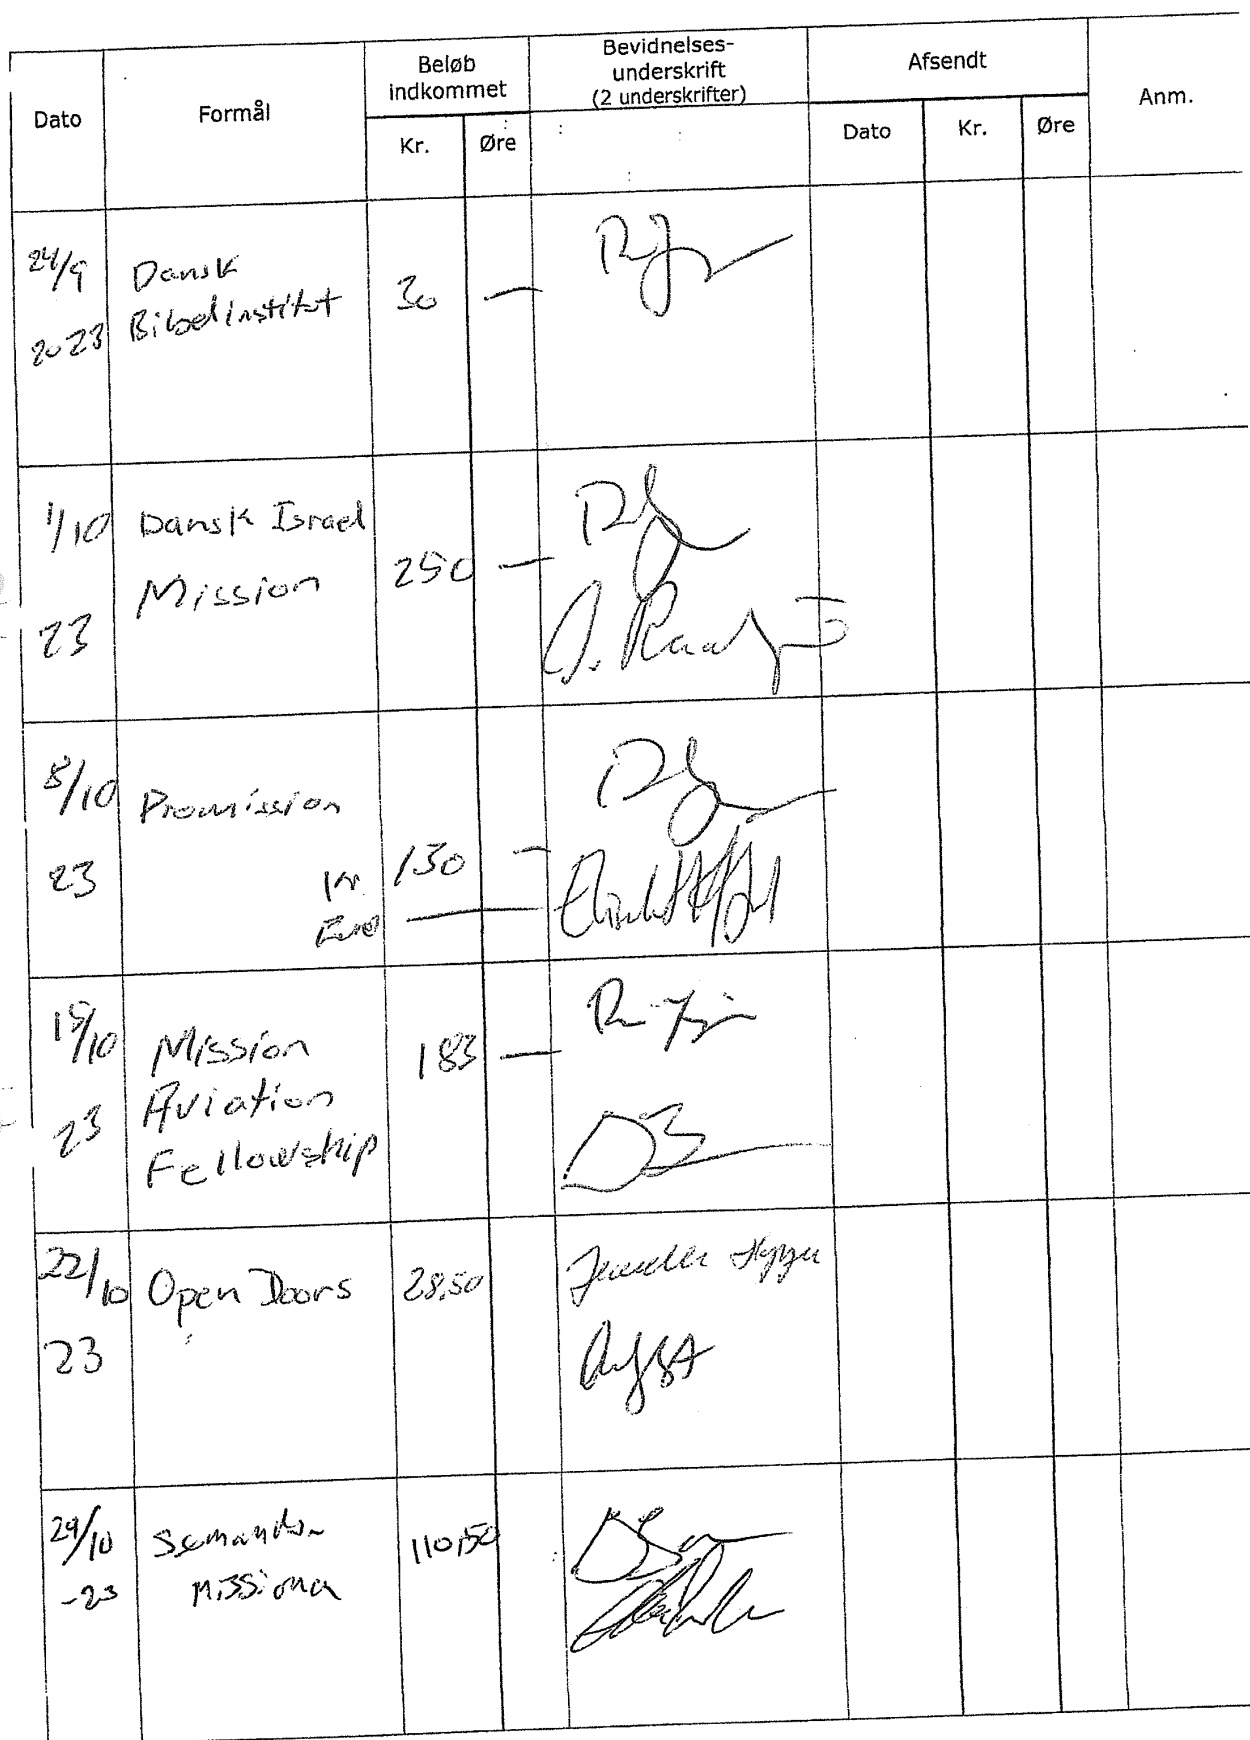 Dato
Formål
Beløb
indkommet
Kr.
Øre
Bevidnelses-
underskrift
(2 underskrifter)
Afsendt
Dato
Kr.
Øre
Anm.
24/9
2023
Dansk
Bibelinstitut
30 —
1/10
23
Dansk Israel
Mission
250 —
8/10
23
Promission
Kr. 130 —
—
15/10
23
Mission
Aviation
Fellowship
183 —
22/10
23
Open Doors
28,50
29/10
-23
110,50